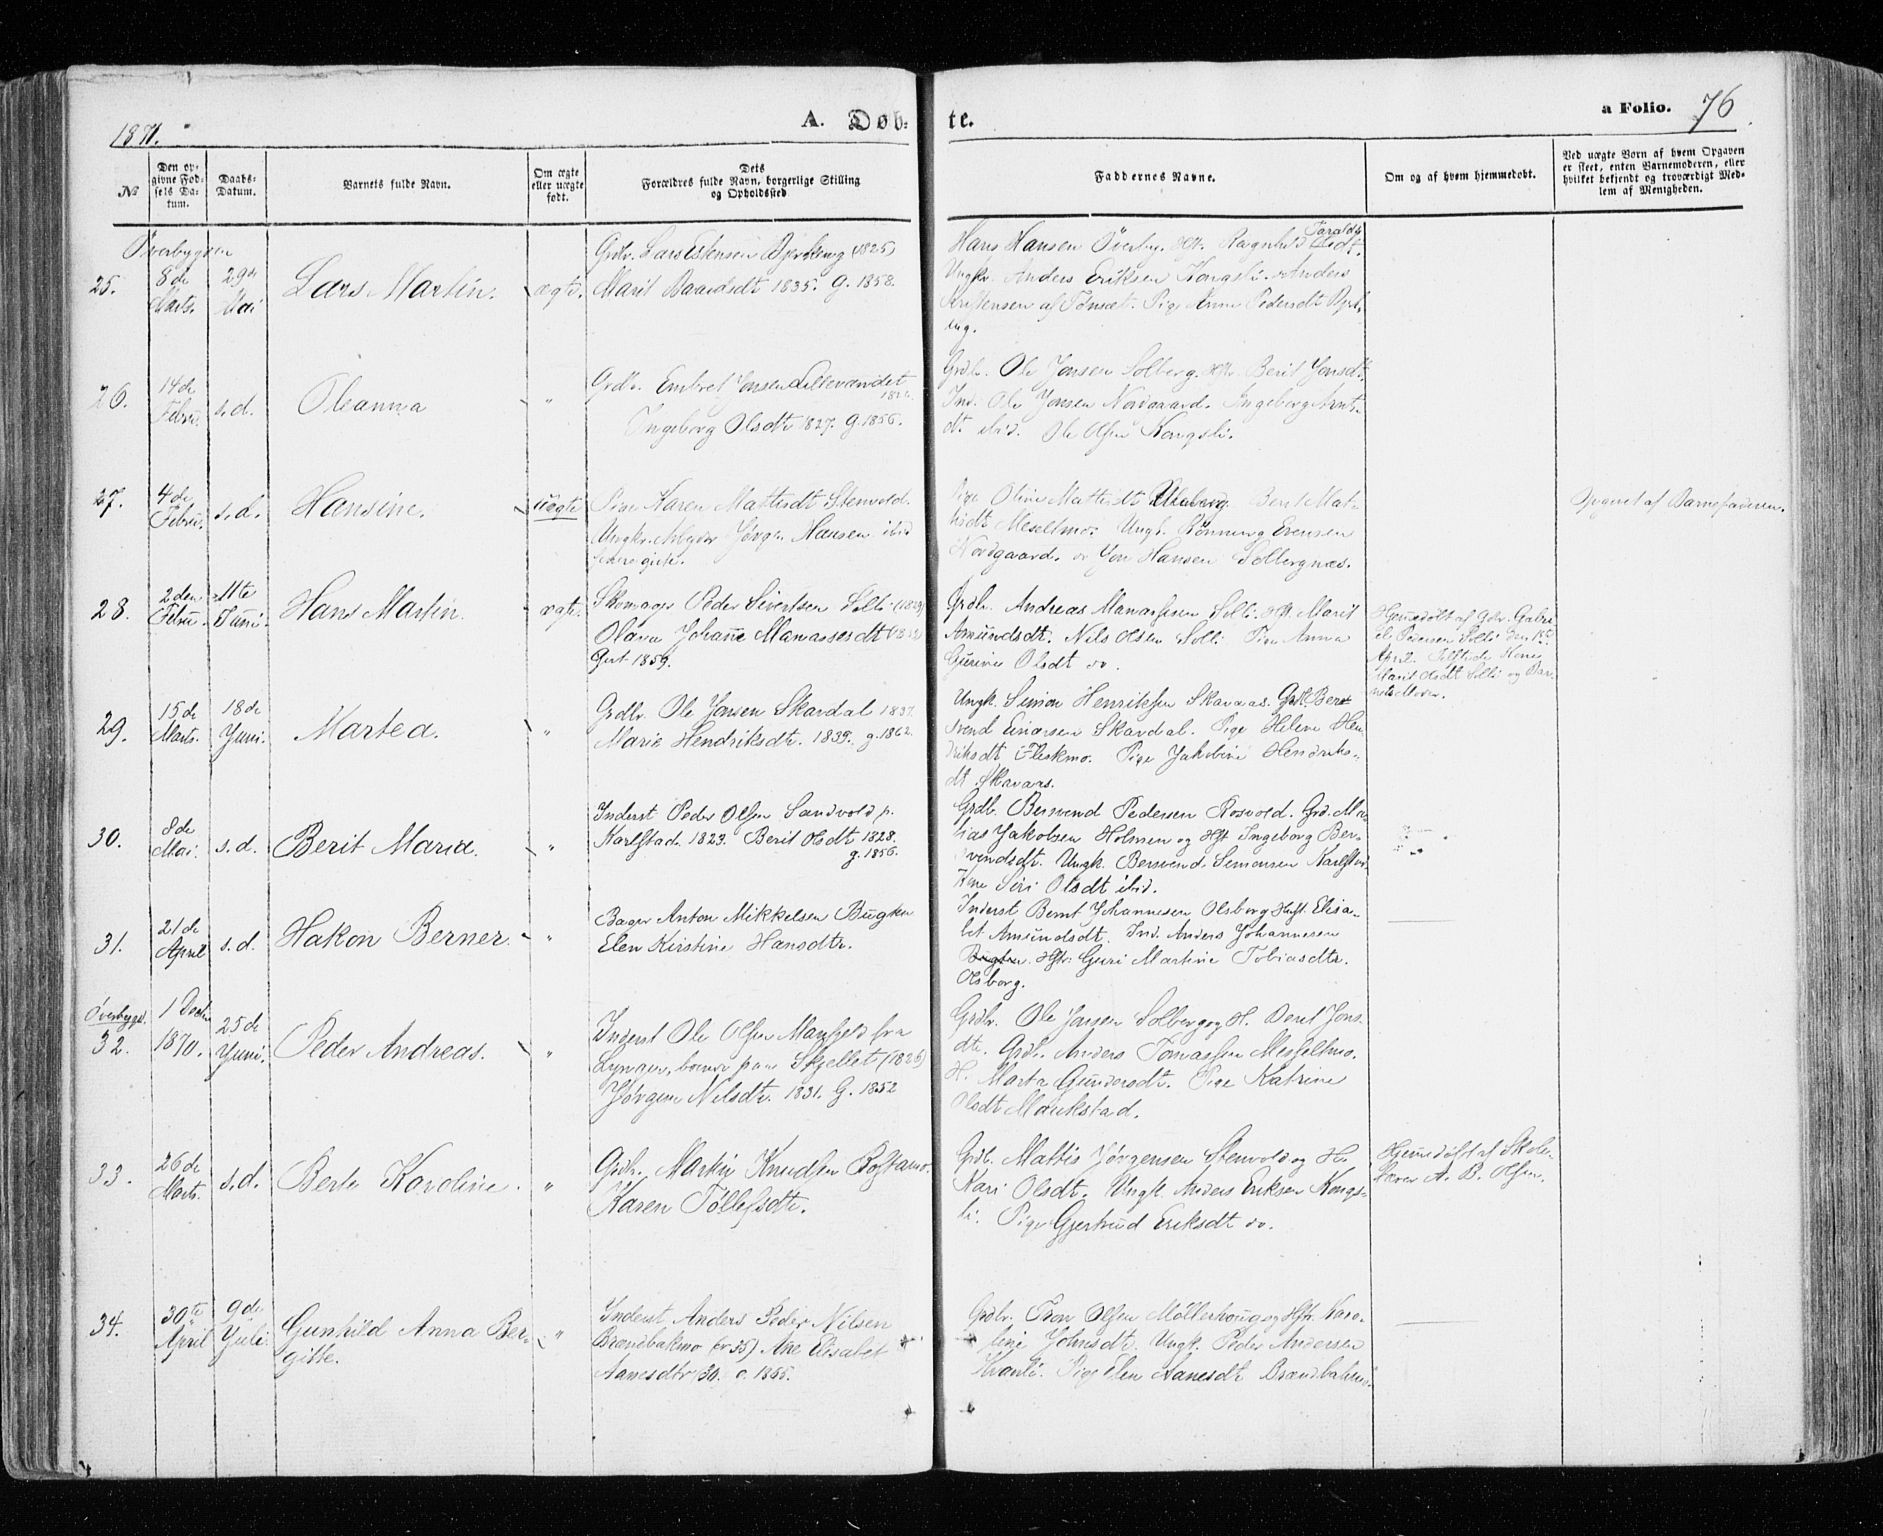 1871.
A. Døb-
te.
a Folio. 76
No
Den op-
givne Fød-
sels Da-
tum.
Daabs-
Datum.
Barnets fulde Navn.
Om ægte
eller uægte
født.
Dets
Forældres fulde Navn, borgerlige Stilling
og Opholdssted
Faddernes Navne.
Om og af hvem hjemmedøbt.
Ved uægte Børn af hvem Opgaven
er skeet, enten Barnemoderen, eller
hvilket bekjendt og troværdigt Med-
lem af Menigheden.
Øverbygden
25.
8de
Marts.
29de
Mai
Lars Martin.
ægte.
Grdbr. Lars Estensen (1825)
Marit Baardsdt 1835. G. 1858.
Hans Hansen Øverby. Hst. Ragnhild Taralds
Olsdt.
Ungkr. Anders Eriksen Kongsli. Anders
Kristensen af Tønset. Pige Anne Pedersdt
ing.
26.
14de
Febru.
s.d.
Oleanna
"
Grdbr. Embret Jonsen
Ingeborg Olsdtr 1827. G. 1856.
Grdb. Ole Jonsen Solberg. Hst. Berit Jonsdt.
Ind. Ole Jonsen Nordgaard. Ingeborg Arnts-
dt. ibid. Ole Olsen Kongsli.
27.
4de
Febru.
s.d.
Hansine.
uægte
Pige Karen Mattisdt Stenvold.
Ungkr. Arbeider Jørgen Hansen ibid
Pige Oline Mattisdt Berit Mat-
tisdt Meseltmo. Ungk. Rønning Evensen
Nordgaard. og Jon Hansen Solbergnæs.
Opgivet af Barnefaderen.
28.
2den
Febru.
11te
Juni.
Hans Martin.
ægte.
Skomager Peder Sivertsen Solli
Olava Johanne Manassesdt
Gift 1859.
Grdbr. Andreas Manassesen Solli. Hst. Marit
Amundsdt. Nils Olsen Solli. Pige Anna
Gurine Olsdt do.
Hjemmedøbt af Gdr. Gabri-
el Pedersen Solli den 18de
April. Tilstede Kone
Marit Olsdt Solli og Bar-
nets Moder.
29.
15de
Marts.
18de
Juni.
Martea.
"
Grdbr. Ole Jonsen Skardal 1837.
Marie Hendriksdtr. 1839. g. 1862.
Ungk. Simon Henriksen Skavaas. Grdb. Ber-
svend Einersen Skardal. Pige Helene Hen-
driksdt Fleskmo. Pige Jakobine Hendriks-
dt Skavaas.
30.
8de
Mai.
s.d.
Berit Maria.
"
Inderst Peder Olsen Sandvold p.
Karlstad. 1823. Berit Olsdt 1828.
g. 1856.
Grdb. Bersvend Pedersen Rosvold. Grd. Ma-
tias Jakobsen Holmen og Hst Ingeborg Ber-
svendsdt. Ungk. Bersvend Simonsen Karlstad.
Kone Siri Olsdt ibid.
31.
21de
April
s.d.
Hakon Berner.
"
Bager Anton Mikkelsen Bugten
Elen Kirstine Hansdtr.
Inderst Bernt Johannesen Olsborg Hust. Elisa-
bet Amundsdt. Ind. Anders Johannesen
Bugten. Hstr. Guri Martine Tobiasdtr.
Olsborg.
Øverbygd.
32.
1 Decbr.
1870.
25de
Juni.
Peder Andreas.
"
Inderst Ole Olsen Manfjeld fra
Lyngen, boende paa Skjellet (1826)
Jørgine Nilsdt. 1831. G. 1852
Grdbr. Ole Jonsen Solberg og H. Beret Jons-
dtr. Grdb. Anders Tomassen Meseltmo.
H. Marta Gundersdt. Pige Katrine
Olsdt Moukstad.
33.
26de
Marts.
s.d.
Berte Karoline.
"
Grdbr. Martin Knudsen Rostamo.
Karen Tollefsdtr.
Grdb. Mattis Jørgensen Stenvold og H.
Kari Olsdt. Ungk. Anders Eriksen Kongs-
li. Pige Gjertrud Eriksdt do.
Hjemmedøbt af Skole-
lærer A. B. Olsen.
34.
30te
April
9de
Juli.
Gunhild Anna Ber-
gitte.
"
Inderst Anders Peder Nilsen
Brandbakmo (35) Ane Elisabet
Aanesdtr (30. g. 1865.
Grdbr. Tron Olsen Møllerhoug og Hst. Karo-
line Johnsdt. Ungk. Peder Andersen
Kvanli. Pige Elen Aanesdt Brandbakmo.